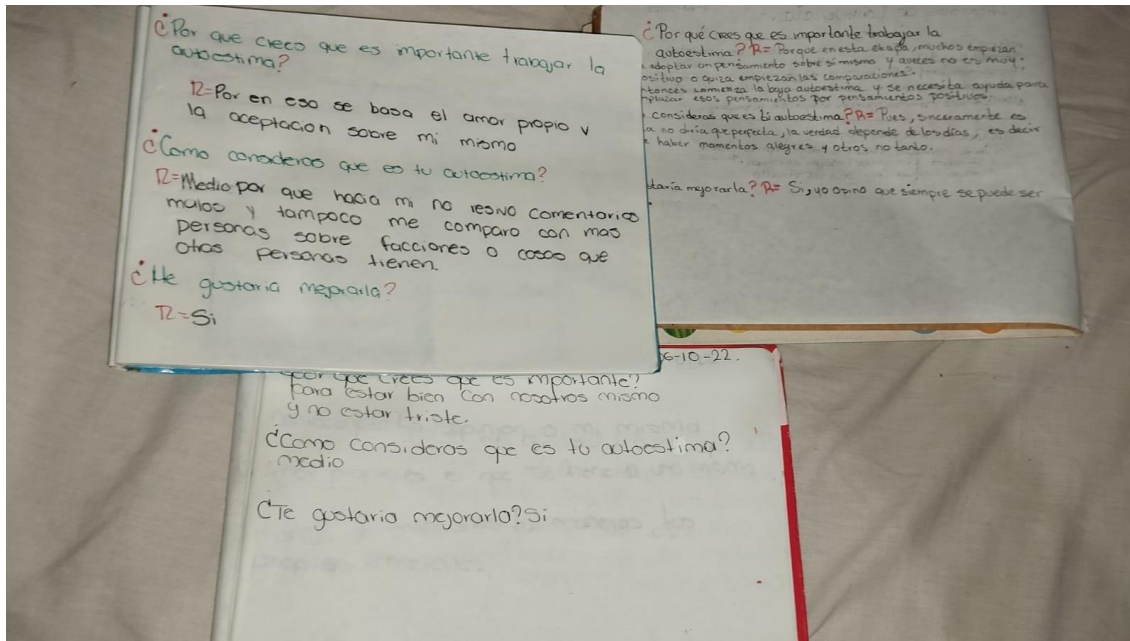 ¿Por que creco que es importante trabajar la
autoestima?
R=Por en eso se basa el amor propio y
la aceptacion sobre mi mismo
¿Como consideras que es tu autoestima?
R=Medio por que hacia mi no resivo comentarios
malos y tampoco me comparo con mas
personas sobre facciones o cosas que
otras personas tienen.
¿Me gustaria mejorarla?
R=Si
¿Por qué crees que es importante trabajar la
autoestima? R= Porque en esta etapa, muchos empiezan
adoptar un pensamiento sobre sí mismo y aveces no es muy
ositivo o quiza empiezan las comparaciones.
ntonces comienza la baja autoestima y se necesita ayuda para
mplazar esos pensamientos por pensamientos positivos.
consideras que es tú autoestima? R= Pues, sinceramente es
a no diria que perfecta, la verdad depende de los días, es decir
haber momentos alegres y otros no tanto.
staría mejorarla? R= Si, yo opino que siempre se puede ser
06-10-22.
¿por que crees que es importante?
para estar bien con nosotros mismo
y no estar triste.
¿Como consideras que es tu autoestima?
medio
¿Te gustaria mejorarlo? Si